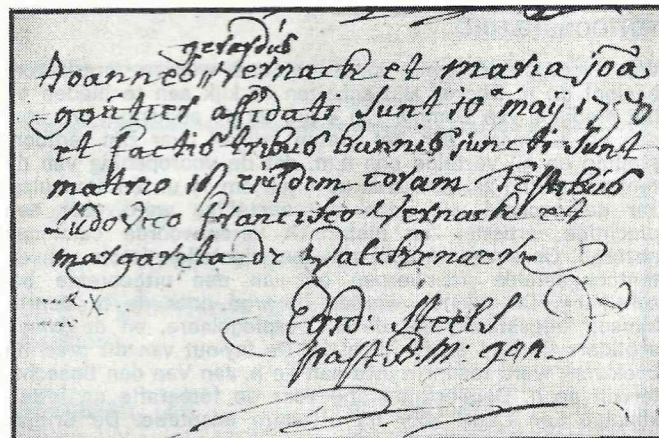 gerardus
Joannes,, Vernack et maria joã
gontier affidati sunt 10ª maij 1758
et factis tribus bannis juncti sunt
matrio 18ª ejusdem coram Testibus
Ludovico Francisco Vernack et
margareta de Valckenaer
Egid: Steels
past. B: M: gan.